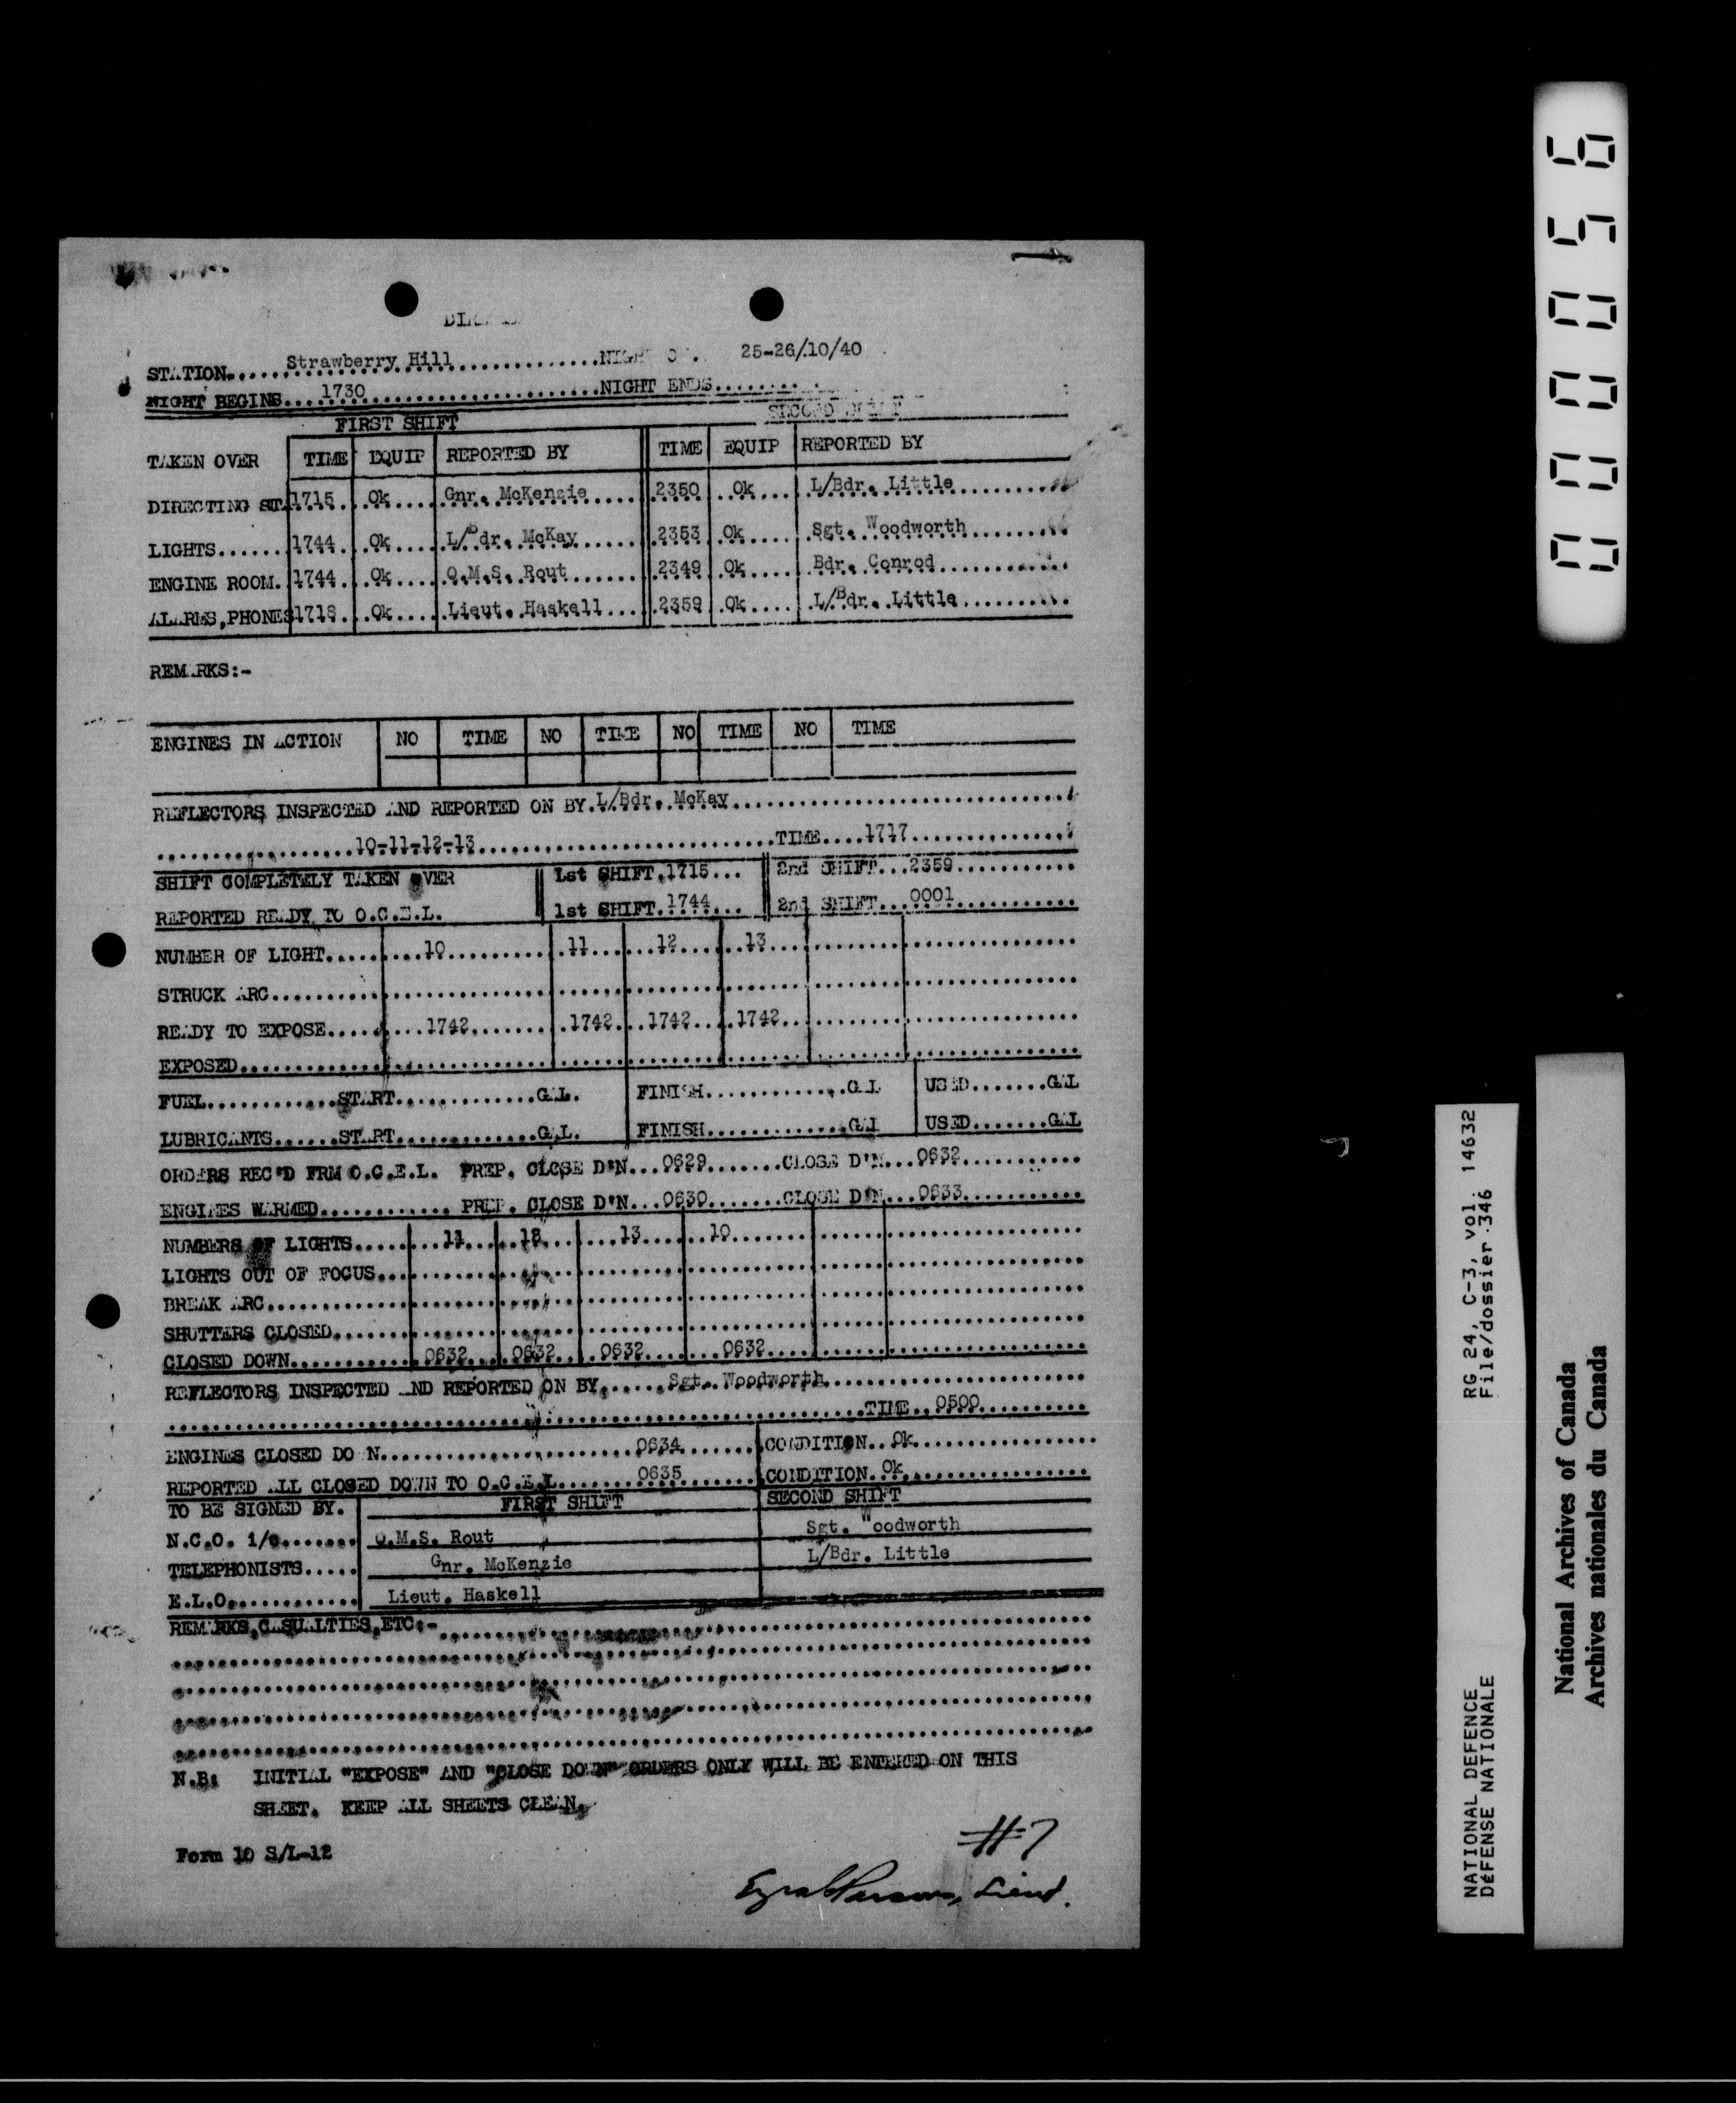 STATION......Strawberry Hill..............NIGHT O . 25-26/10/40
NIGHT BEGINS....1730.......................NIGHT ENDS........
FIRST SHIFT SECOND
TAKEN OVER TIME EQUIP REPORTED BY TIME EQUIP REPORTED BY
DIRECTING ST. 1715 Ok Gnr. McKenzie 2350 Ok L/Bdr. Little
LIGHTS....... 1744 Ok L/Bdr. McKay 2353 Ok Sgt. Woodworth
ENGINE ROOM. 1744 Ok Q.M.S. Rout 2349 Ok Bdr. Conrod
ALARMS,PHONES 1718 Ok Lieut. Haskell 2359 Ok L/Bdr. Little
REMARKS:-
ENGINES IN ACTION NO TIME NO TIME NO TIME NO TIME
REFLECTORS INSPECTED AND REPORTED ON BY.L/Bdr. McKay
10-11-12-13 TIME....1717
SHIFT COMPLETELY TAKEN OVER 1st SHIFT.1715... 2nd SHIFT...2359
REPORTED READY TO O.C.E.L. 1st SHIFT.1744... 2nd SHIFT...0001
NUMBER OF LIGHT.. 10 11 12 13
STRUCK ARC
READY TO EXPOSE 1742 1742 1742 1742
EXPOSED
FUEL............START.............GAL. FINISH.............GAL USED.......GAL
LUBRICANTS......START.............GAL. FINISH.............GAL USED.......GAL
ORDERS REC'D FRM O.C.E.L. PREP. CLOSE D'N...0629.......CLOSE D'N...0632
ENGINES WARMED............ PREP. CLOSE D'N...0630.......CLOSE D'N...0633
NUMBERS OF LIGHTS 11 12 13 10
LIGHTS OUT OF FOCUS
BREAK ARC
SHUTTERS CLOSED
CLOSED DOWN 0632 0632 0632 0632
REFLECTORS INSPECTED AND REPORTED ON BY......Sgt. Woodworth
TIME..0500
ENGINES CLOSED DO N 0634 CONDITION..Ok
REPORTED ALL CLOSED DOWN TO O.C.E.L 0635 CONDITION..Ok
TO BE SIGNED BY. FIRST SHIFT SECOND SHIFT
N.C.O. i/c....... Q.M.S. Rout Sgt. Woodworth
TELEPHONISTS..... Gnr. McKenzie L/Bdr. Little
E.L.O............ Lieut. Haskell
REMARKS,CASUALTIES,ETC:-
N.B: INITIAL "EXPOSE" AND "CLOSE DOWN" ORDERS ONLY WILL BE ENTERED ON THIS
SHEET. KEEP ALL SHEETS CLEAN.
Form 10 S/L-12
#7
Lieut.
000056
RG 24, C-3, vol. 14632
File/dossier 346
NATIONAL DEFENCE
DÉFENSE NATIONALE
National Archives of Canada
Archives nationales du Canada